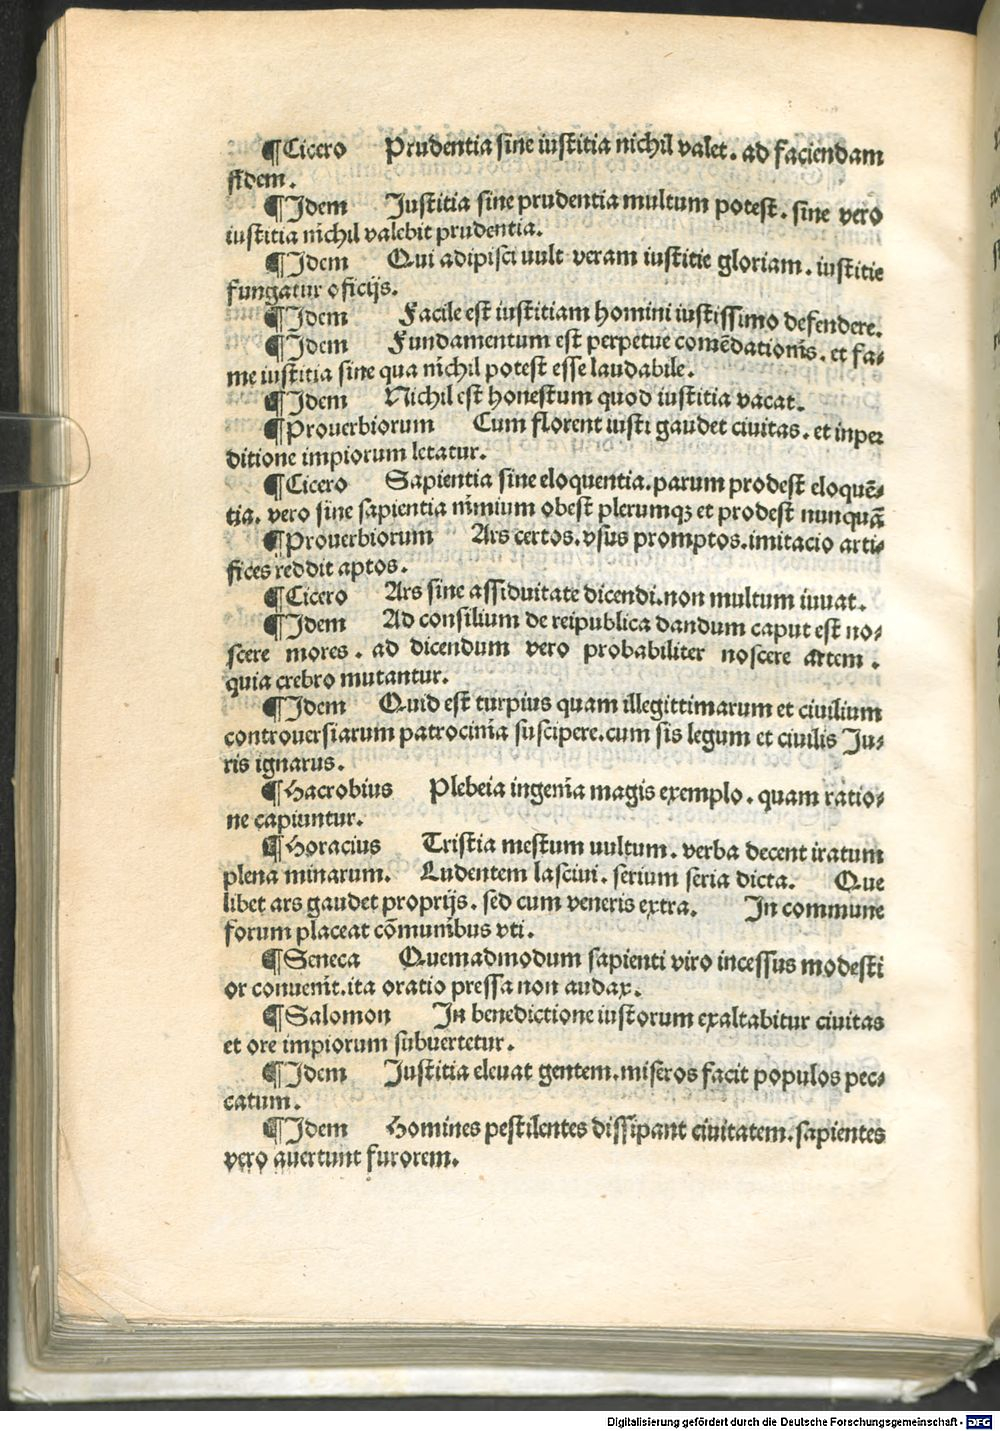 ¶Cicero Prudentia sine iustitia nichil valet. ad faciendam
fidem.
¶Idem Justitia sine prudentia multum potest. sine vero
iustitia nichil valebit prudentia.
¶Idem Qui adipisci uult veram iustitie gloriam. iustitie
fungatur officijs.
¶Idem Facile est iustitiam homini iustissimo defendere.
¶Idem Fundamentum est perpetue comēdationis. et fa⸗
me iustitia sine qua nichil potest esse laudabile.
¶Idem Nichil est honestum quod iustitia vacat.
¶Prouerbiorum Cum florent iusti gaudet ciuitas. et in per
ditione impiorum letatur.
¶Cicero Sapientia sine eloquentia. parum prodest eloquē⸗
tia. vero sine sapientia nimium obest plerumqꝫ et prodest nunquā
¶Prouerbiorum Ars certos. vsus promptos. imitacio arti⸗
fices reddit aptos.
¶Cicero Ars sine assiduitate dicendi. non multum iuuat.
¶Idem Ad consilium de reipublica dandum caput est no⸗
scere mores. ad dicendum vero probabiliter noscere artem.
quia crebro mutantur.
¶Idem Quid est turpius quam illegittimarum et ciuilium
controuersiarum patrocinia suscipere. cum sis legum et ciuilis Ju⸗
ris ignarus.
¶Macrobius Plebeia ingenia magis exemplo. quam ratio⸗
ne capiuntur.
¶Horacius Tristia mestum uultum. verba decent iratum
plena minarum. Ludentem lasciui. serium seria dicta. Que
libet ars gaudet proprijs. sed cum veneris extra. In commune
forum placeat cōmunibus vti.
¶Seneca Quemadmodum sapienti viro incessus modesti
or conuenit. ita oratio pressa non audax.
¶Salomon In benedictione iustorum exaltabitur ciuitas
et ore impiorum subuertetur.
¶Idem Justitia eleuat gentem. miseros facit populos pec⸗
catum.
¶Idem Homines pestilentes dissipant ciuitatem. sapientes
vero auertunt furorem.
Digitalisierung gefördert durch die Deutsche Forschungsgemeinschaft - DFG